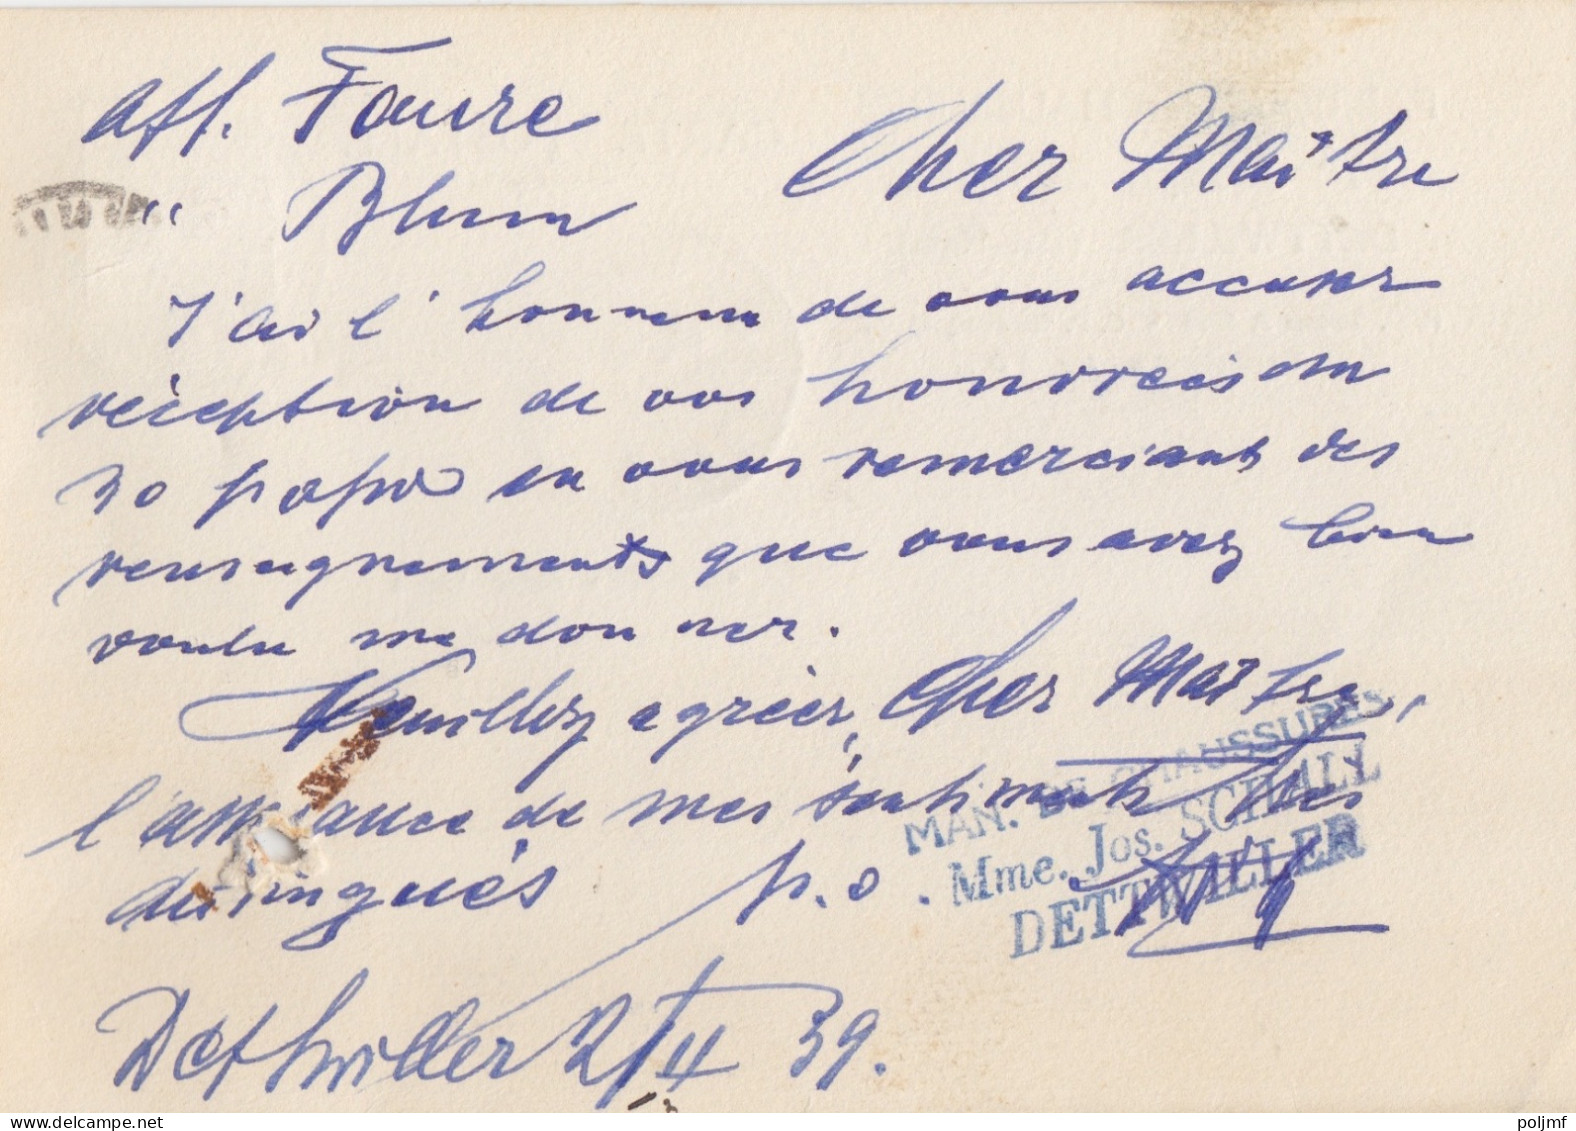 aff. Faure
" Blum
Cher Maître
J'ai l'honneur de vous accuser
réception de vos honoraires du
30 passé en vous remerciant des
renseignements que vous avez bien
voulu me donner.
Veuillez agréer, Cher Maître,
l'assurance de mes sentiments très
distingués p.o.
MAN. DE CHAUSSURES
Mme. Jos. SCHALL
DETTWILLER
Dettwiller 2/4 39.
poljmf